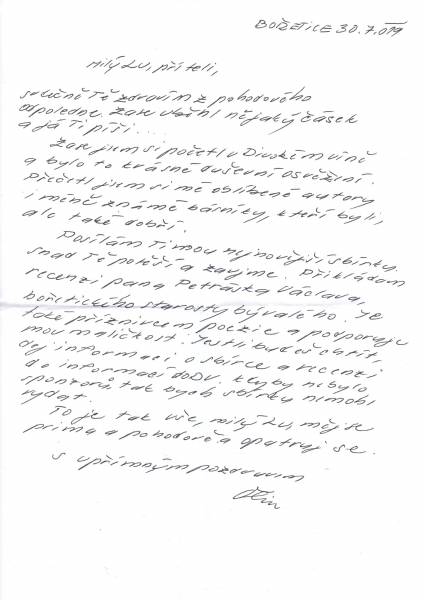 BOŘETICE 30.7.019
milý LU, příteli,
srdečně Tě zdravím z pohodového
odpoledne. Zase vyšel nějaký čásek
a já Ti píši...
Zase jsem si početl v Divokém víně
a bylo to krásné duševní osvěžení.
Přečetl jsem si mé oblíbené autory
i méně známé básníky, kteří byli,
ale také dobří.
Posílám Ti mou nejnovější sbírku,
snad Tě potěší a zaujme. Přikládám
recenzi pana Petráska Václava,
bořetického starosty bývalého. Je
také příznivcem poezie a podporuje
mou maličkost. Jestli budeš chtít,
dej informaci o sbírce a recenzi
do informací do DV. Kdyby nebylo
sponzorů, tak bych sbírky nemohl
vydat.
To je tak vše, milý LU, měj se
prima a pohodově a opatruj se.
S upřímným pozdravem